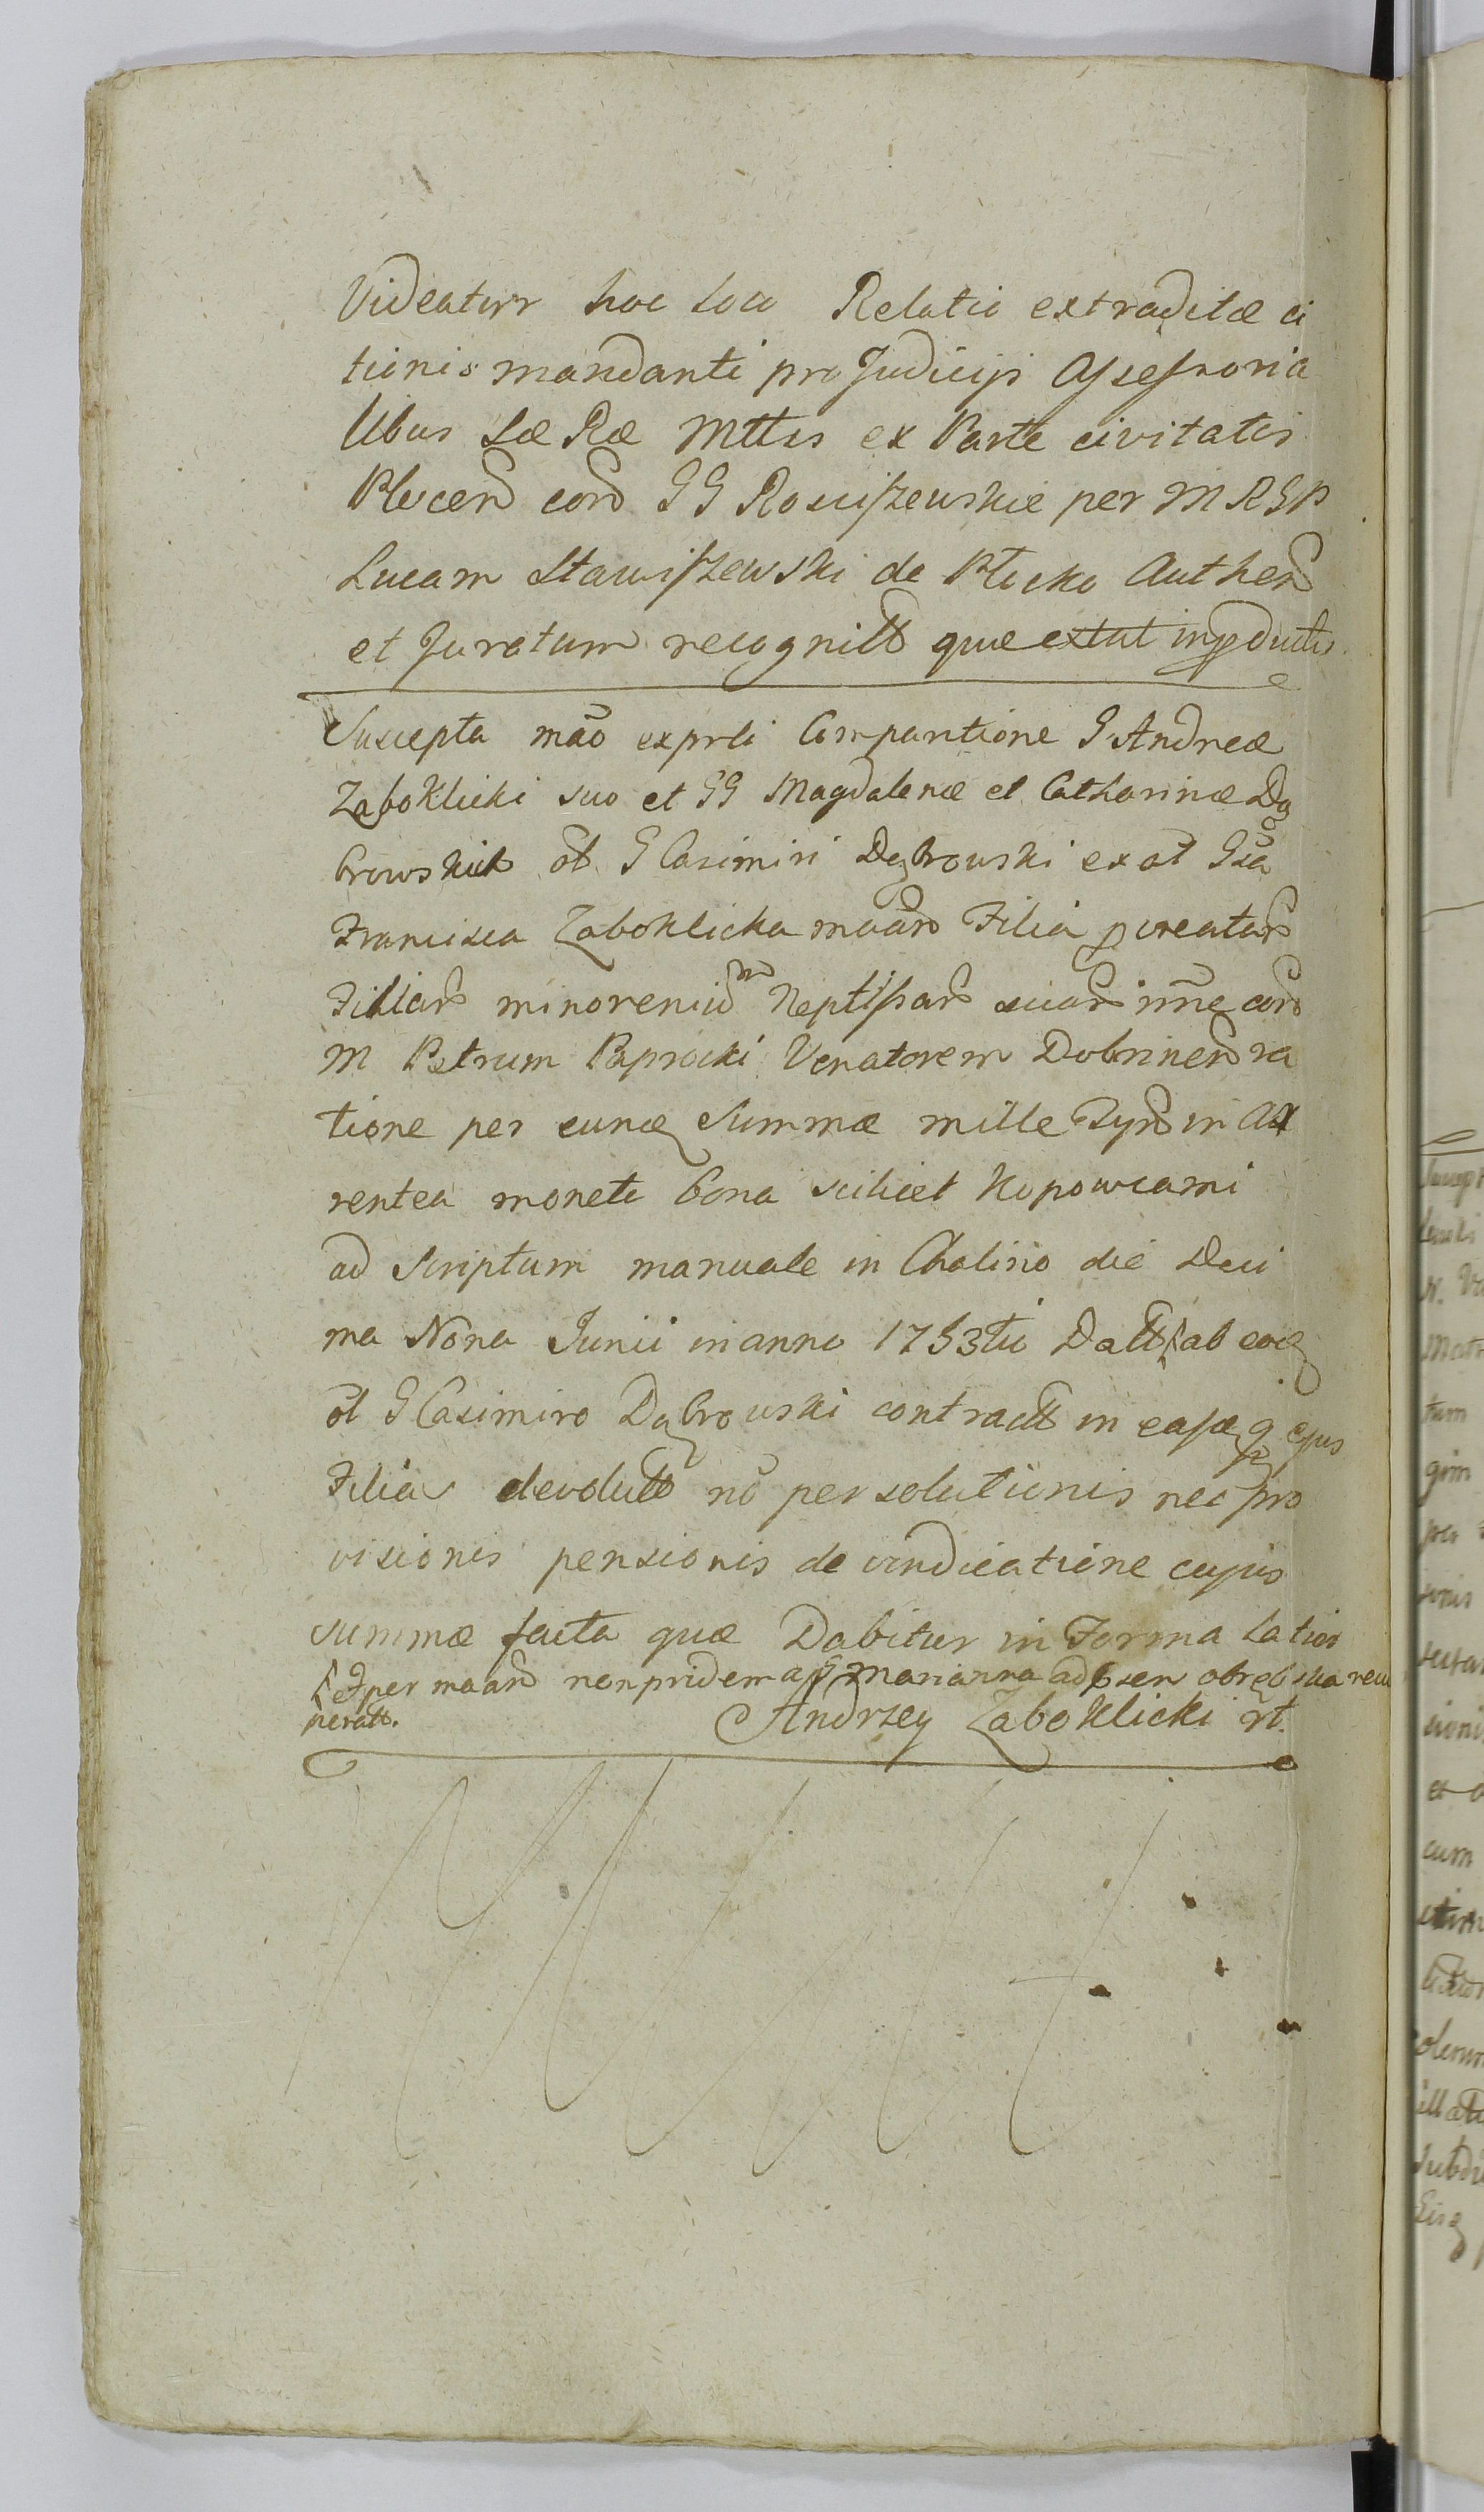 Videatur hoc loco Relatio extraditæ ci
tionis mandanti pro Judicijs Assessoria
libus Sæ Ræ Mttis ex Parte civitatis
Plocen con GG Rosciszewskie per M R G P
Lucam Stawiszewski de Plocko Authen
et Juratum recognitt quæ extat in productis
Suscepta mão exprli Comparitione G Andreæ
Zaboklicki suo et GG Magdalenæ et Catharinæ Dą
browskich ol G Casimiri Dąbrowski ex ol Gsa
Francisca Zaboklicka maan Filia pcreatar
Filiar minoreniu Neptissar suar nne con
M Petrum Paprocki Venatorem Dobrinen ra
tione per eunq Summæ mille Tyn in Ar
rentea moneta bona scilicet Kopowcami
ad Scriptum manuale in Cholino die Deci
ma Nona Junii in anno 1753tio Datt ab eoq
ol G Casimiro Dąbrowski contractt in easq ejus
Filias devolutt nõ persolutionis nec pro
visionis pensionis de vindicatione cujus
summæ facta quæ Dabitur in Forma Latior
et per maan non pridem a G Marianna ad psen obrębska recu
peratt.
Andrzey Zaboklicki rt.